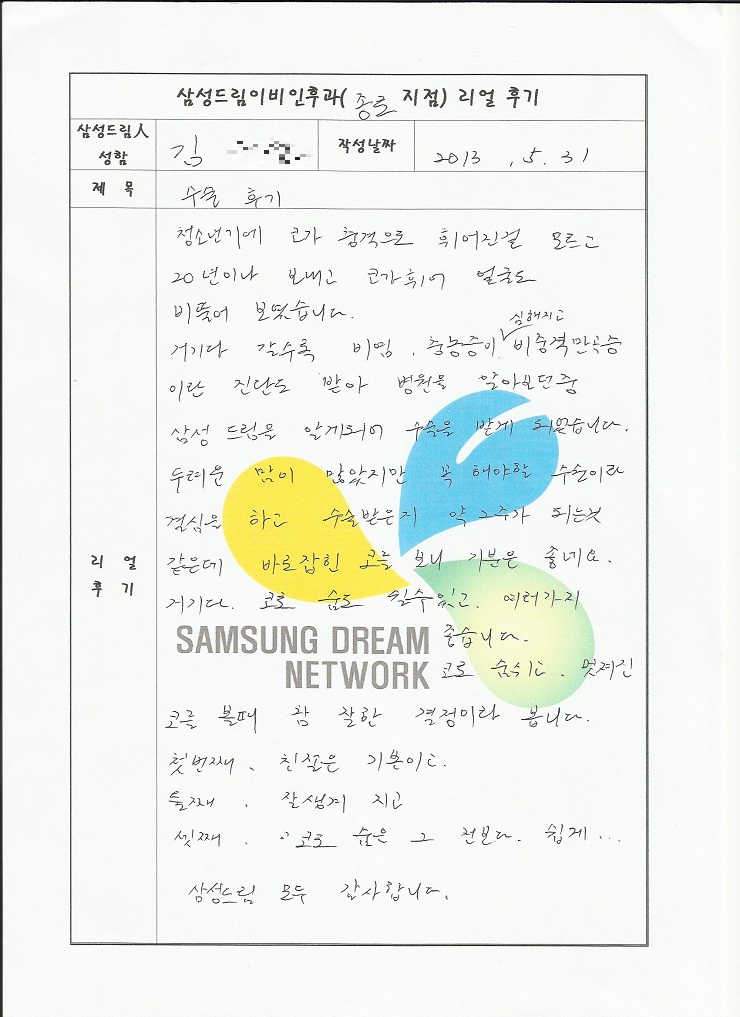 삼성드림이비인후과(종로 지점) 리얼 후기
삼성드림人 성함
김
작성날짜
2013 . 5. 31
제 목
수술 후기
리 얼 후 기
청소년기에 코가 충격으로 휘어진걸 모르고
20년이나 보내고 코가휘어 얼굴도
비뚤어 보였습니다.
거기다 갈수록 비염, 축농증이 심해지고 비중격만곡증
이란 진단도 받아 병원을 알아보던중
삼성 드림을 알게되어 수술을 받게 되었습니다.
두려운 맘이 많았지만 꼭 해야할 수술이라
결심을 하고 수술받은지 약 2주가 되는것
같은데 바로잡힌 코를 보니 기분은 좋네요.
거기다. 코로 숨도 쉴수있고. 여러가지
좋습니다.
코로 숨쉬고. 멋져진
코를 볼때 참 잘한 결정이라 봅니다.
첫번째. 친절은 기본이고.
둘째. 잘생겨 지고
셋째. 코로 숨은 그 전보다. 쉽게...
삼성드림 모두 감사합니다.
SAMSUNG DREAM
NETWORK